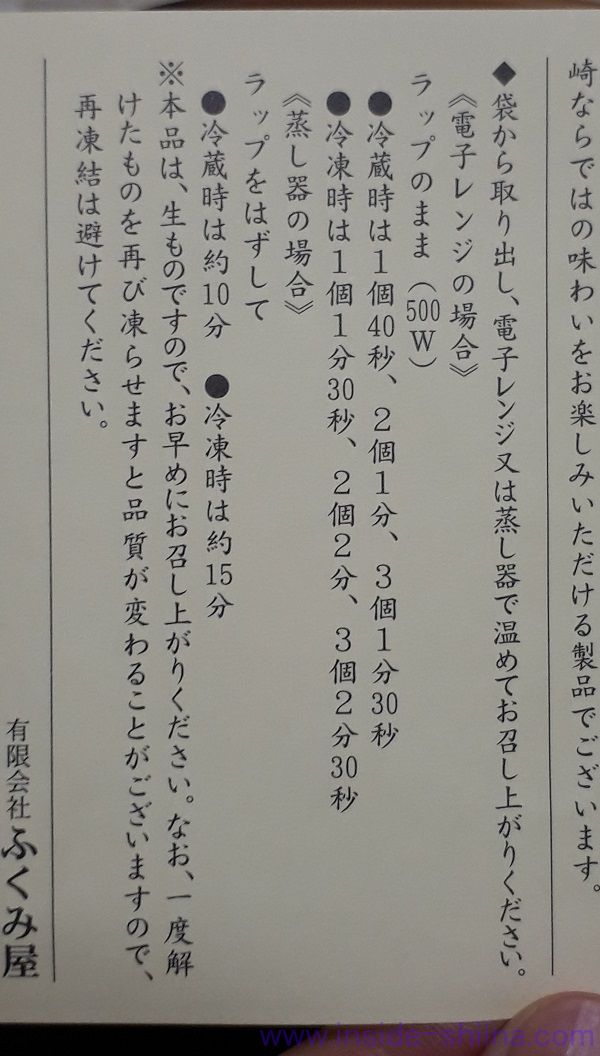 崎ならではの味わいをお楽しみいただける製品でございます。
◆袋から取り出し、電子レンジ又は蒸し器で温めてお召し上がりください。
《電子レンジの場合》
ラップのまま（500W）
●冷蔵時は１個40秒、２個１分、３個１分30秒
●冷凍時は１個１分30秒、２個２分、３個２分30秒
《蒸し器の場合》
ラップをはずして
●冷蔵時は約10分　●冷凍時は約15分
※本品は、生ものですので、お早めにお召し上がりください。なお、一度解
けたものを再び凍らせますと品質が変わることがございますので、
再凍結は避けてください。
有限会社ふくみ屋
www.inside-shiina.com